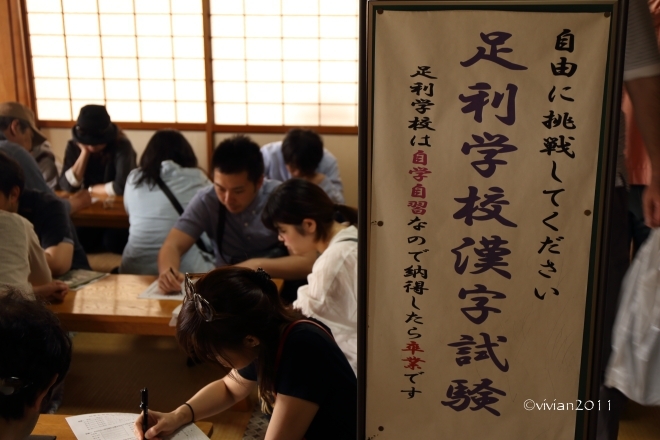 自由に挑戦してください
足利学校漢字試験
足利学校は自学自習なので納得したら卒業です
©vivian2011